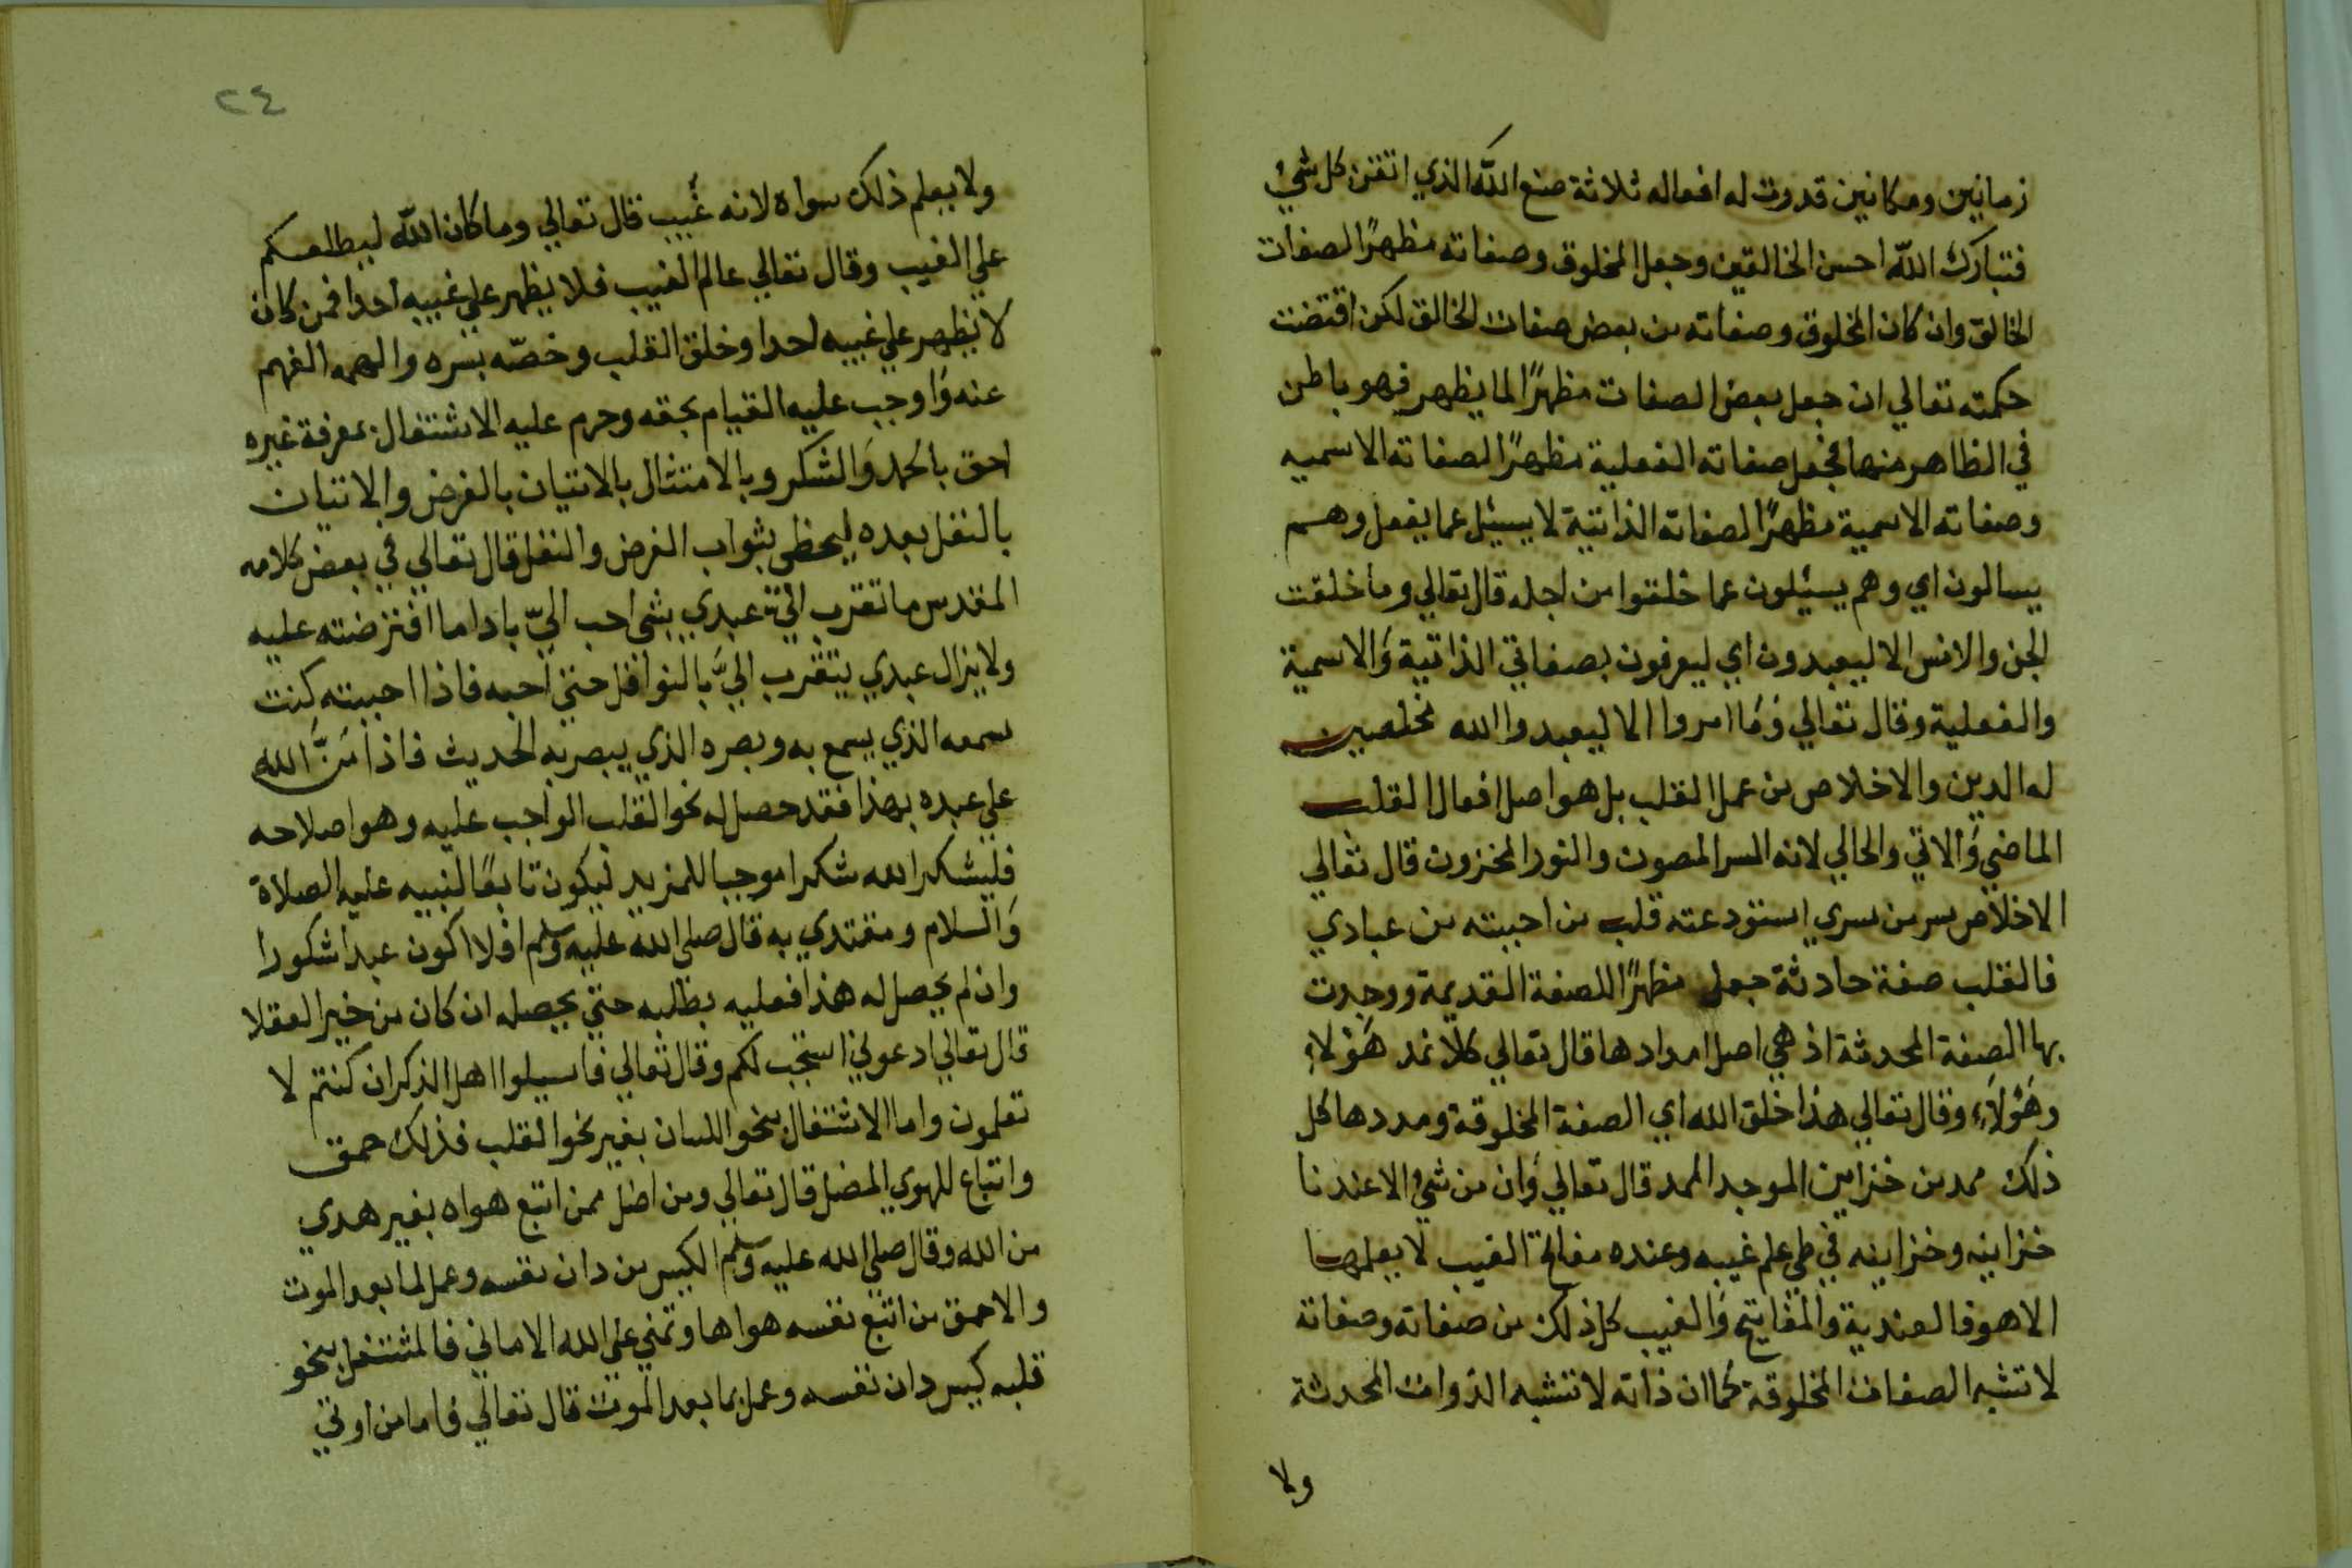 زمانين ومكانين قدوت له افعاله ثلاثة صنع الله الذي اتقن كل شيء
فتبارك الله احسن الخالقين وجعل المخلوق وصفاته مظهرًا لصفات
الخالق وان كان المخلوق وصفاته من بعض صفات الخالق لكن اقتضت
حكمته تعالي ان جعل بعض الصفات مظهرًا لما يظهر فهو باطن
في الظاهر منها فجعل صفاته الفعلية مظهرًا لصفاته الاسميه
وصفاته الاسمية مظهرًا لصفاته الذاتية لا يسئل عما يفعل وهم
يسالون اي وهم يسئلون عما خلقوا من اجله قال تعالي وما خلقت
الجن والانس الا ليعبدون اي ليعرفون بصفاتي الذاتية والاسمية
والفعلية وقال تعالي وما امروا الا ليعبدوا الله مخلصين
له الدين والاخلاص من عمل القلب بل هو اصل افعال القلب
الماضي والاتي والحالي لانه السر المصون والنور المخزون قال تعالي
الاخلاص سر من سري استودعته قلب من احببته من عبادي
فالقلب صفة حادثة جعل مظهرًا للصفة القديمة ووجدت
بها الصفة المحدثة اذ هي اصل امدادها قال تعالي كلا نمد هؤلاء
وهؤلاء وقال تعالي هذا خلق الله اي الصفة المخلوقة ومددها كل
ذلك ممد من خزاين الموجد الممد قال تعالي وان من شيء الا عندنا
خزاينه وخزاينه في طي علم غيبه وعنده مفاتح الغيب لا يعلمها
الا هو فالعندية والمفاتيح والغيب كل ذلك من صفاته وصفاته
لا تشبه الصفات المخلوقة كما ان ذاته لا تشبه الذوات المحدثة
ولا
٢٤
ولا يعلم ذلك سواه لانه غيب قال تعالي وما كان الله ليطلعكم
علي الغيب وقال تعالي عالم الغيب فلا يظهر علي غيبه احدا فمن كان
لا يظهر علي غيبه احدا وخلق القلب وخصّه بسره والهمه الفهم
عنه واوجب عليه القيام بحقه وحرم عليه الاشتغال بمعرفة غيره
احق بالحمد والشكر وبالامتثال بالاتيان بالفرض والاتيان
بالنفل بعده ليحظي بثواب الفرض والنفل قال تعالي في بعض كلامه
المقدس ما تقرب اليّ عبدي بشي احب اليّ باداما افترضته عليه
ولا يزال عبدي يتقرب اليّ بالنوافل حتي احبه فاذا احببته كنت
سمعه الذي يسمع به وبصره الذي يبصر به الحديث فاذا مَنَّ الله
علي عبده بهذا فقد حصل له نحو القلب الواجب عليه وهو اصلاحه
فليشكر الله شكرا موجبا للمزيد ليكون تابعًا لنبيه عليه الصلاة
والسلام ومقتدي به قال صلي الله عليه وسلم افلا اكون عبدا شكورا
وان لم يحصل له هذا فعليه بطلبه حتي يحصله ان كان من خير العقلا
قال تعالي ادعوني استجب لكم وقال تعالي فاسيلوا اهل الذكر ان كنتم لا
تعلمون واما الاشتغال بنحو اللسان بغير نحو القلب فذلك حمق
واتباع للهوي المضل قال تعالي ومن اضل ممن اتبع هواه بغير هدي
من الله وقال صلي الله عليه وسلم الكيس من دان نفسه وعمل لما بعد الموت
والاحمق من اتبع نفسه هواها وتمني علي الله الاماني فالمشتغل بنحو
قلبه كيس دان نفسه وعمل بما بعد الموت قال تعالي فاما من اوتي